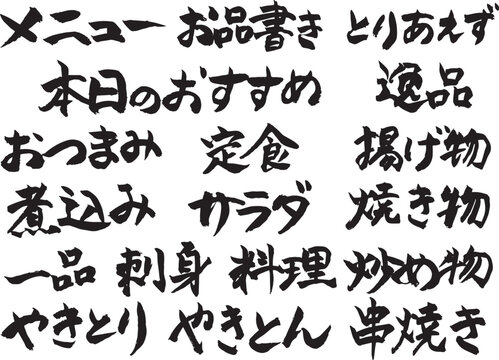 メニュー お品書き とりあえず
本日のおすすめ 逸品
おつまみ 定食 揚げ物
煮込み サラダ 焼き物
一品 刺身 料理 炒め物
やきとり やきとん 串焼き